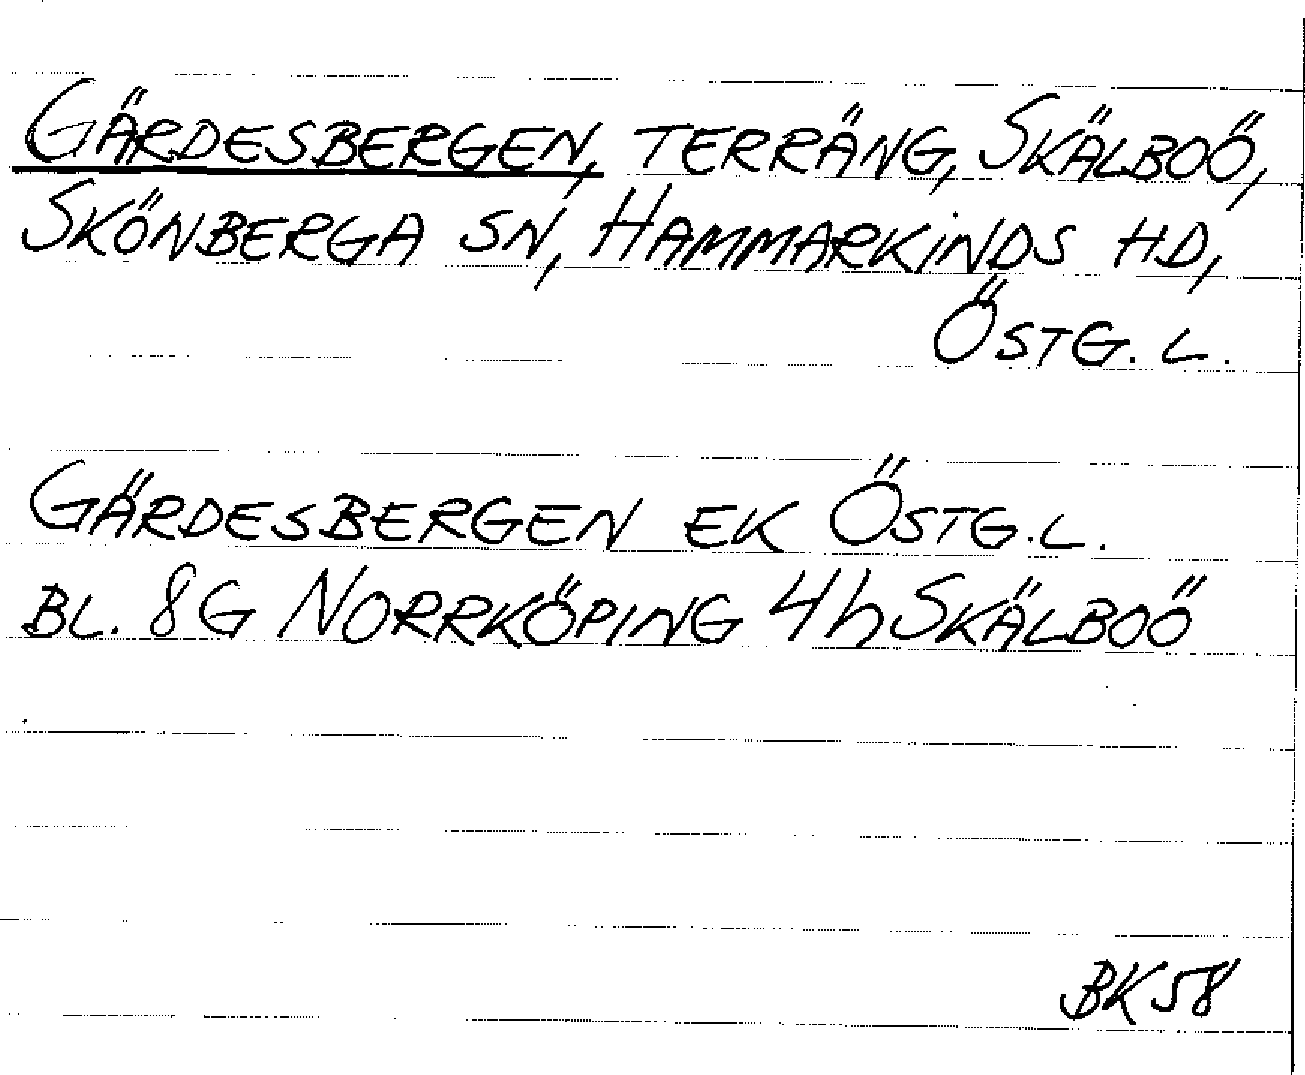 GÄRDESBERGEN, TERRÄNG, SKÄLBOÖ,
SKÖNBERGA SN, HAMMARKINDS HD,
ÖSTG. L.
GÄRDESBERGEN EK ÖSTG.L.
BL. 8G NORRKÖPING 4h SKÄLBOÖ
BK58